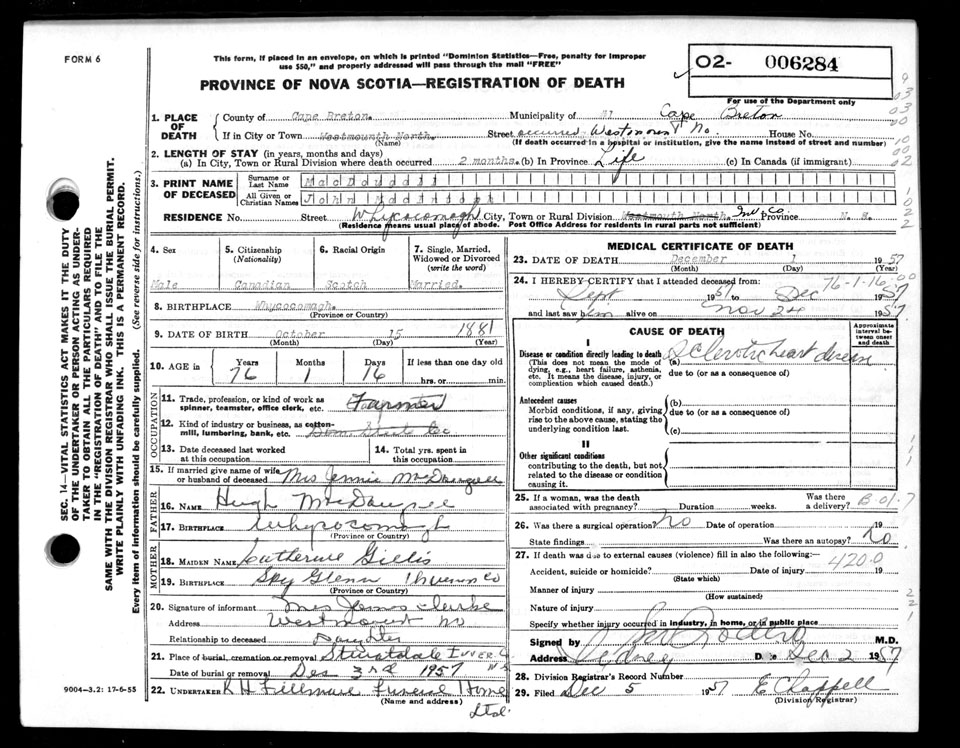 FORM 6
This form, if placed in an envelope, on which is printed "Dominion Statistics—Free, penalty for improper
use $50," and properly addressed will pass through the mail "FREE"
PROVINCE OF NOVA SCOTIA—REGISTRATION OF DEATH
02- 006284
For use of the Department only
1. PLACE OF DEATH
County of Cape Breton. Municipality of #1 Cape Breton
If in City or Town Westmounth North. Street occurred Westmount No. House No.
(Name) (If death occurred in a hospital or institution, give the name instead of street and number)
2. LENGTH OF STAY (in years, months and days)
(a) In City, Town or Rural Division where death occurred 2 months. (b) In Province Life (c) In Canada (if immigrant)
3. PRINT NAME OF DECEASED
Surname or Last Name MacDougall
All Given or Christian Names John
RESIDENCE No. Street Whycocomagh City, Town or Rural Division Westmouth North. Inv Co Province N. S.
(Residence means usual place of abode. Post Office Address for residents in rural parts not sufficient)
4. Sex
Male
5. Citizenship (Nationality)
Canadian
6. Racial Origin
Scotch
7. Single, Married, Widowed or Divorced (write the word)
Married.
8. BIRTHPLACE Whycocomagh.
(Province or Country)
9. DATE OF BIRTH October 15 1881
(Month) (Day) (Year)
10. AGE in Years 76 Months 1 Days 16 If less than one day old hrs. or min.
OCCUPATION
11. Trade, profession, or kind of work as spinner, teamster, office clerk, etc. Farmer
12. Kind of industry or business, as cotton-mill, lumbering, bank, etc.
13. Date deceased last worked at this occupation
14. Total yrs. spent in this occupation
15. If married give name of wife or husband of deceased Mrs Jennie McDougall
FATHER
16. NAME Hugh MacDougall
17. BIRTHPLACE Whycocomagh
(Province or Country)
MOTHER
18. MAIDEN NAME Catherine Gillis
19. BIRTHPLACE Sky Glenn Inverns Co
(Province or Country)
20. Signature of informant Mrs James Clarke
Address Westmount No
Relationship to deceased Daughter
21. Place of burial, cremation or removal Stewartdale Inver. C N S
Date of burial or removal Dec 3rd 1957
22. UNDERTAKER R H Fillmore Funeral Home Ltd.
(Name and address)
9004—3.2: 17-6-55
MEDICAL CERTIFICATE OF DEATH
23. DATE OF DEATH December 1 1957
(Month) (Day) (Year)
24. I HEREBY CERTIFY that I attended deceased from: 76-1-16-00
Sept 1957 to Dec 1957
and last saw him alive on Nov 24 1957
CAUSE OF DEATH
Approximate interval between onset and death
I
Disease or condition directly leading to death (a) Sclerotic heart disease
(This does not mean the mode of dying, e.g., heart failure, asthenia, etc. It means the disease, injury, or complication which caused death.)
due to (or as a consequence of)
Antecedent causes
Morbid conditions, if any, giving rise to the above cause, stating the underlying condition last.
(b)
due to (or as a consequence of)
(c)
II
Other significant conditions
contributing to the death, but not related to the disease or condition causing it.
25. If a woman, was the death associated with pregnancy? Duration weeks. Was there a delivery? B-01-7
26. Was there a surgical operation? No Date of operation 19
State findings Was there an autopsy? No
27. If death was due to external causes (violence) fill in also the following: 420.0
Accident, suicide or homicide? Date of injury 19
(State which)
Manner of injury
(How sustained)
Nature of injury
Specify whether injury occurred in industry, in home, or in public place
Signed by M.D.
Address Sydney Date Dec 2 1957
28. Division Registrar's Record Number
29. Filed Dec 5 1957 E Chappell
(Division Registrar)
SEC. 14—VITAL STATISTICS ACT MAKES IT THE DUTY
OF THE UNDERTAKER OR PERSON ACTING AS UNDER-
TAKER TO OBTAIN ALL THE PARTICULARS REQUIRED
IN THE "REGISTRATION OF DEATH" AND TO FILE THE
SAME WITH THE DIVISION REGISTRAR WHO SHALL ISSUE THE BURIAL PERMIT.
WRITE PLAINLY WITH UNFADING INK. THIS IS A PERMANENT RECORD.
Every item of information should be carefully supplied. (See reverse side for instructions.)